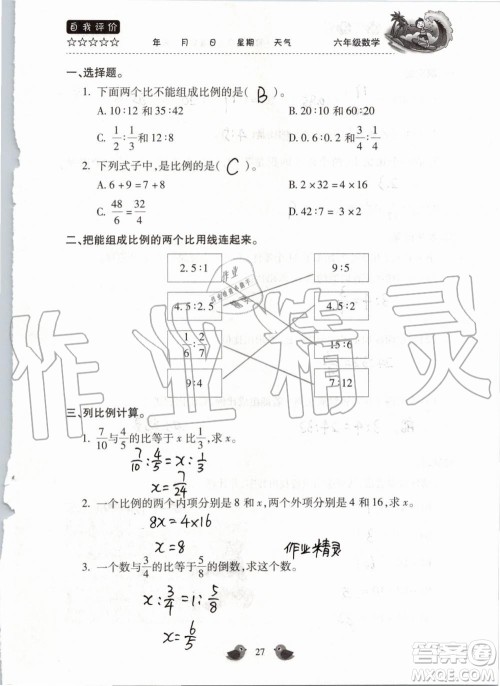 自我评价
☆☆☆☆☆ 年 月 日 星期 天气 六年级数学
一、选择题。
1. 下面两个比不能组成比例的是( B )。
A. 10∶12 和 35∶42 B. 20∶10 和 60∶20
C. 1/2∶1/3 和 12∶8 D. 0.6∶0.2 和 3/4∶1/4
2. 下列式子中,是比例的是( C )。
A. 6+9=7+8 B. 2×32=4×16
C. 48/6=32/4 D. 42∶7= 3×2
二、把能组成比例的两个比用线连起来。
2.5∶1 9∶5
4.5∶2.5 4.5∶2
1/6∶2/7 15∶6
9∶4 7∶12
三、列比例计算。
1. 7/10与4/5的比等于x比1/3,求x。
7/10∶4/5=x∶1/3
x=7/24
2. 一个比例的两个内项分别是8和x,两个外项分别是4和16,求x。
8x=4×16
x=8 作业精灵
3. 一个数与3/4的比等于5/8的倒数,求这个数。
x∶3/4=1∶5/8
x=6/5
27
作业精灵
答案圈